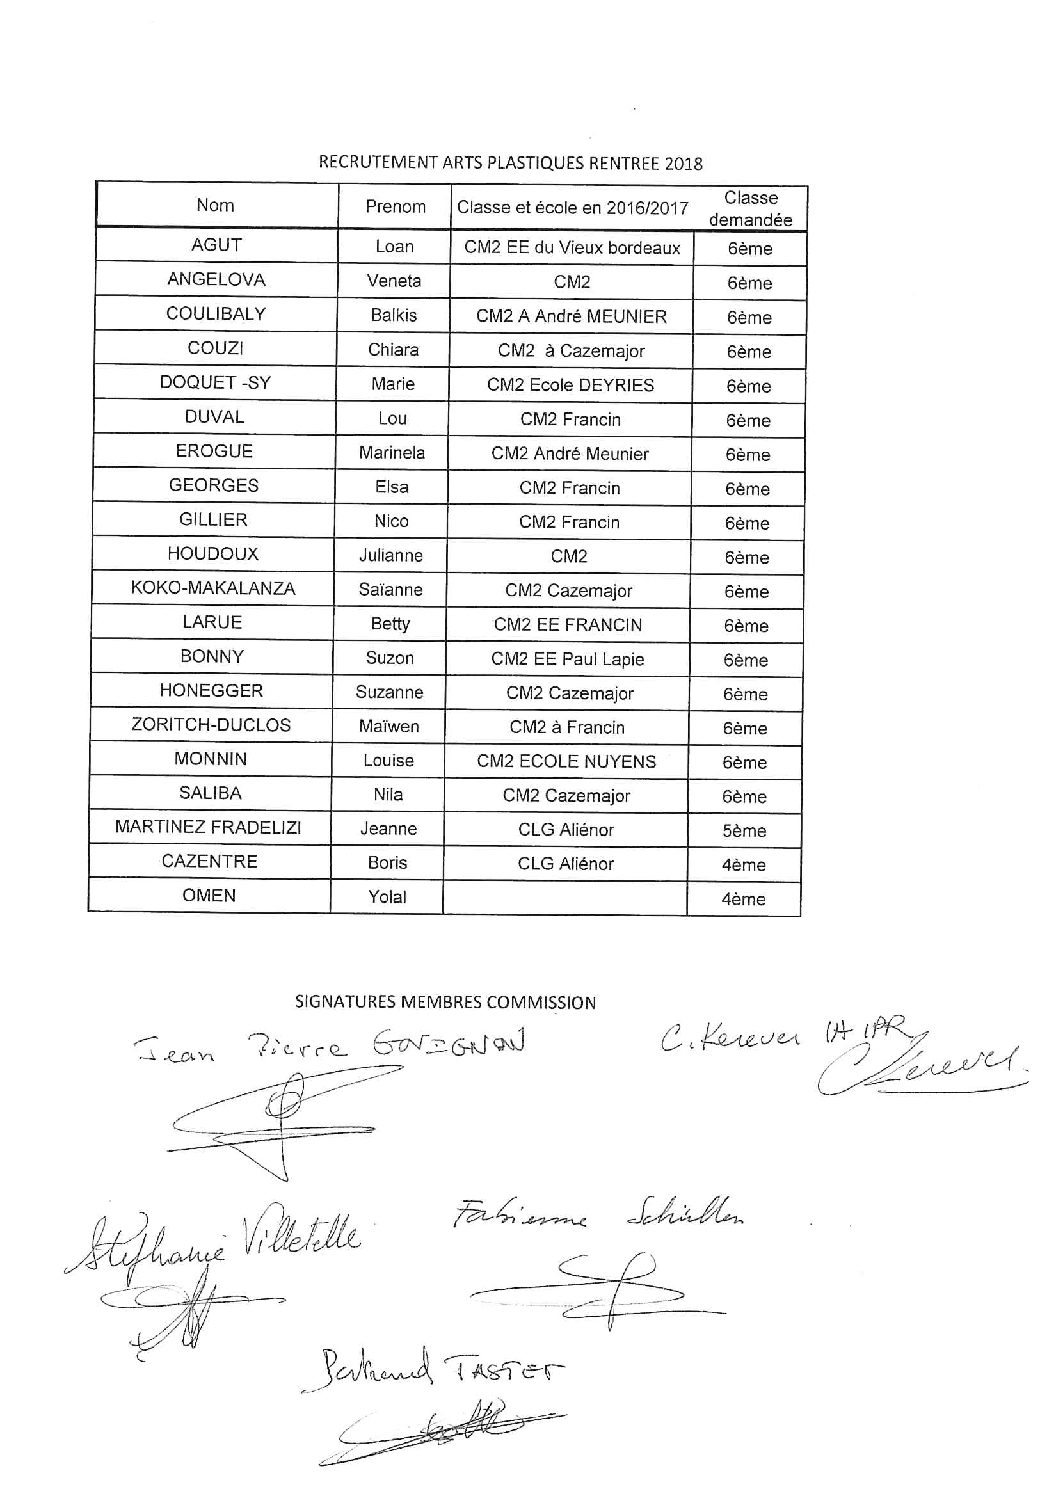 RECRUTEMENT ARTS PLASTIQUES RENTREE 2018
Nom Prenom Classe et école en 2016/2017 Classe demandée
AGUT Loan CM2 EE du Vieux bordeaux 6ème
ANGELOVA Veneta CM2 6ème
COULIBALY Balkis CM2 A André MEUNIER 6ème
COUZI Chiara CM2 à Cazemajor 6ème
DOQUET -SY Marie CM2 Ecole DEYRIES 6ème
DUVAL Lou CM2 Francin 6ème
EROGUE Marinela CM2 André Meunier 6ème
GEORGES Elsa CM2 Francin 6ème
GILLIER Nico CM2 Francin 6ème
HOUDOUX Julianne CM2 6ème
KOKO-MAKALANZA Saïanne CM2 Cazemajor 6ème
LARUE Betty CM2 EE FRANCIN 6ème
BONNY Suzon CM2 EE Paul Lapie 6ème
HONEGGER Suzanne CM2 Cazemajor 6ème
ZORITCH-DUCLOS Maïwen CM2 à Francin 6ème
MONNIN Louise CM2 ECOLE NUYENS 6ème
SALIBA Nila CM2 Cazemajor 6ème
MARTINEZ FRADELIZI Jeanne CLG Aliénor 5ème
CAZENTRE Boris CLG Aliénor 4ème
OMEN Yolal 4ème
SIGNATURES MEMBRES COMMISSION
Jean Pierre C. Kerever IA IPR
Kerever
Stéphanie Villetelle Fabienne
Bertrand TASTET